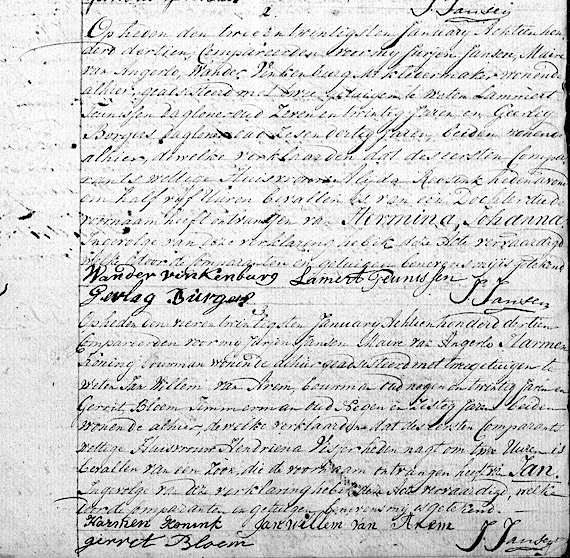 2
J. Jansen
Op heden den tweeentwintigsten January Achtien hon,
derd dertien, Compareerden voor my Jurjen Jansen, Maire
van Angerlo, Wander Vinkenburg, wonende
alhier, geassisteerd met twee getuigen, te weten Lammert
Teunissen Daglooner oud Zeven en twintig Jaren en Gerleg
Burgers Dagloner oud Zes en dertig Jaren, beiden wonende
alhier, dewelke verklaarden dat des eersten Compa,
rants wettige Huisvrouw Aleyda Roosenk heden avond
om half vyf Uuren bevallen is van een Dochter die de
voornaam heeft ontvangen van Hermina, Johanna
Ingevolge van deze verklaring heb ik deze Acte vervaardigd
welke door de comparanten en getuigen benevens my is getekend
Wander vinkenburg Lamert Teunissen
Gerleg Burgers J. Jansen
3
Op heden den vierentwintigsten January Achtienhonderd dertien
Compareerden voor my Jurjen Jansen Maire van Angerlo Harmen
Koning bouwman wonende alhier geassisteerd met twee getuigen te
weten Jan Willem van Arem, bouwman oud negen en twintig Jaren en
Gerrit Bloem Timmerman oud Zeven en Zestig Jaren beiden
wonende alhier, dewelke verklaarden dat des eersten Comparants
wettige Huisvrouw Hendriena Visser heden nagt om twee Uuren is
bevallen van een Zoon, die de voornaam ontvangen heeft van Jan
Ingevolge van deze verklaring heb ik deze Acte vervaardigd, welke
door de comparanten en getuigen benevens my is getekend.
Harmen Konink Jan Willem van Arem
gerret Bloem J. Jansen